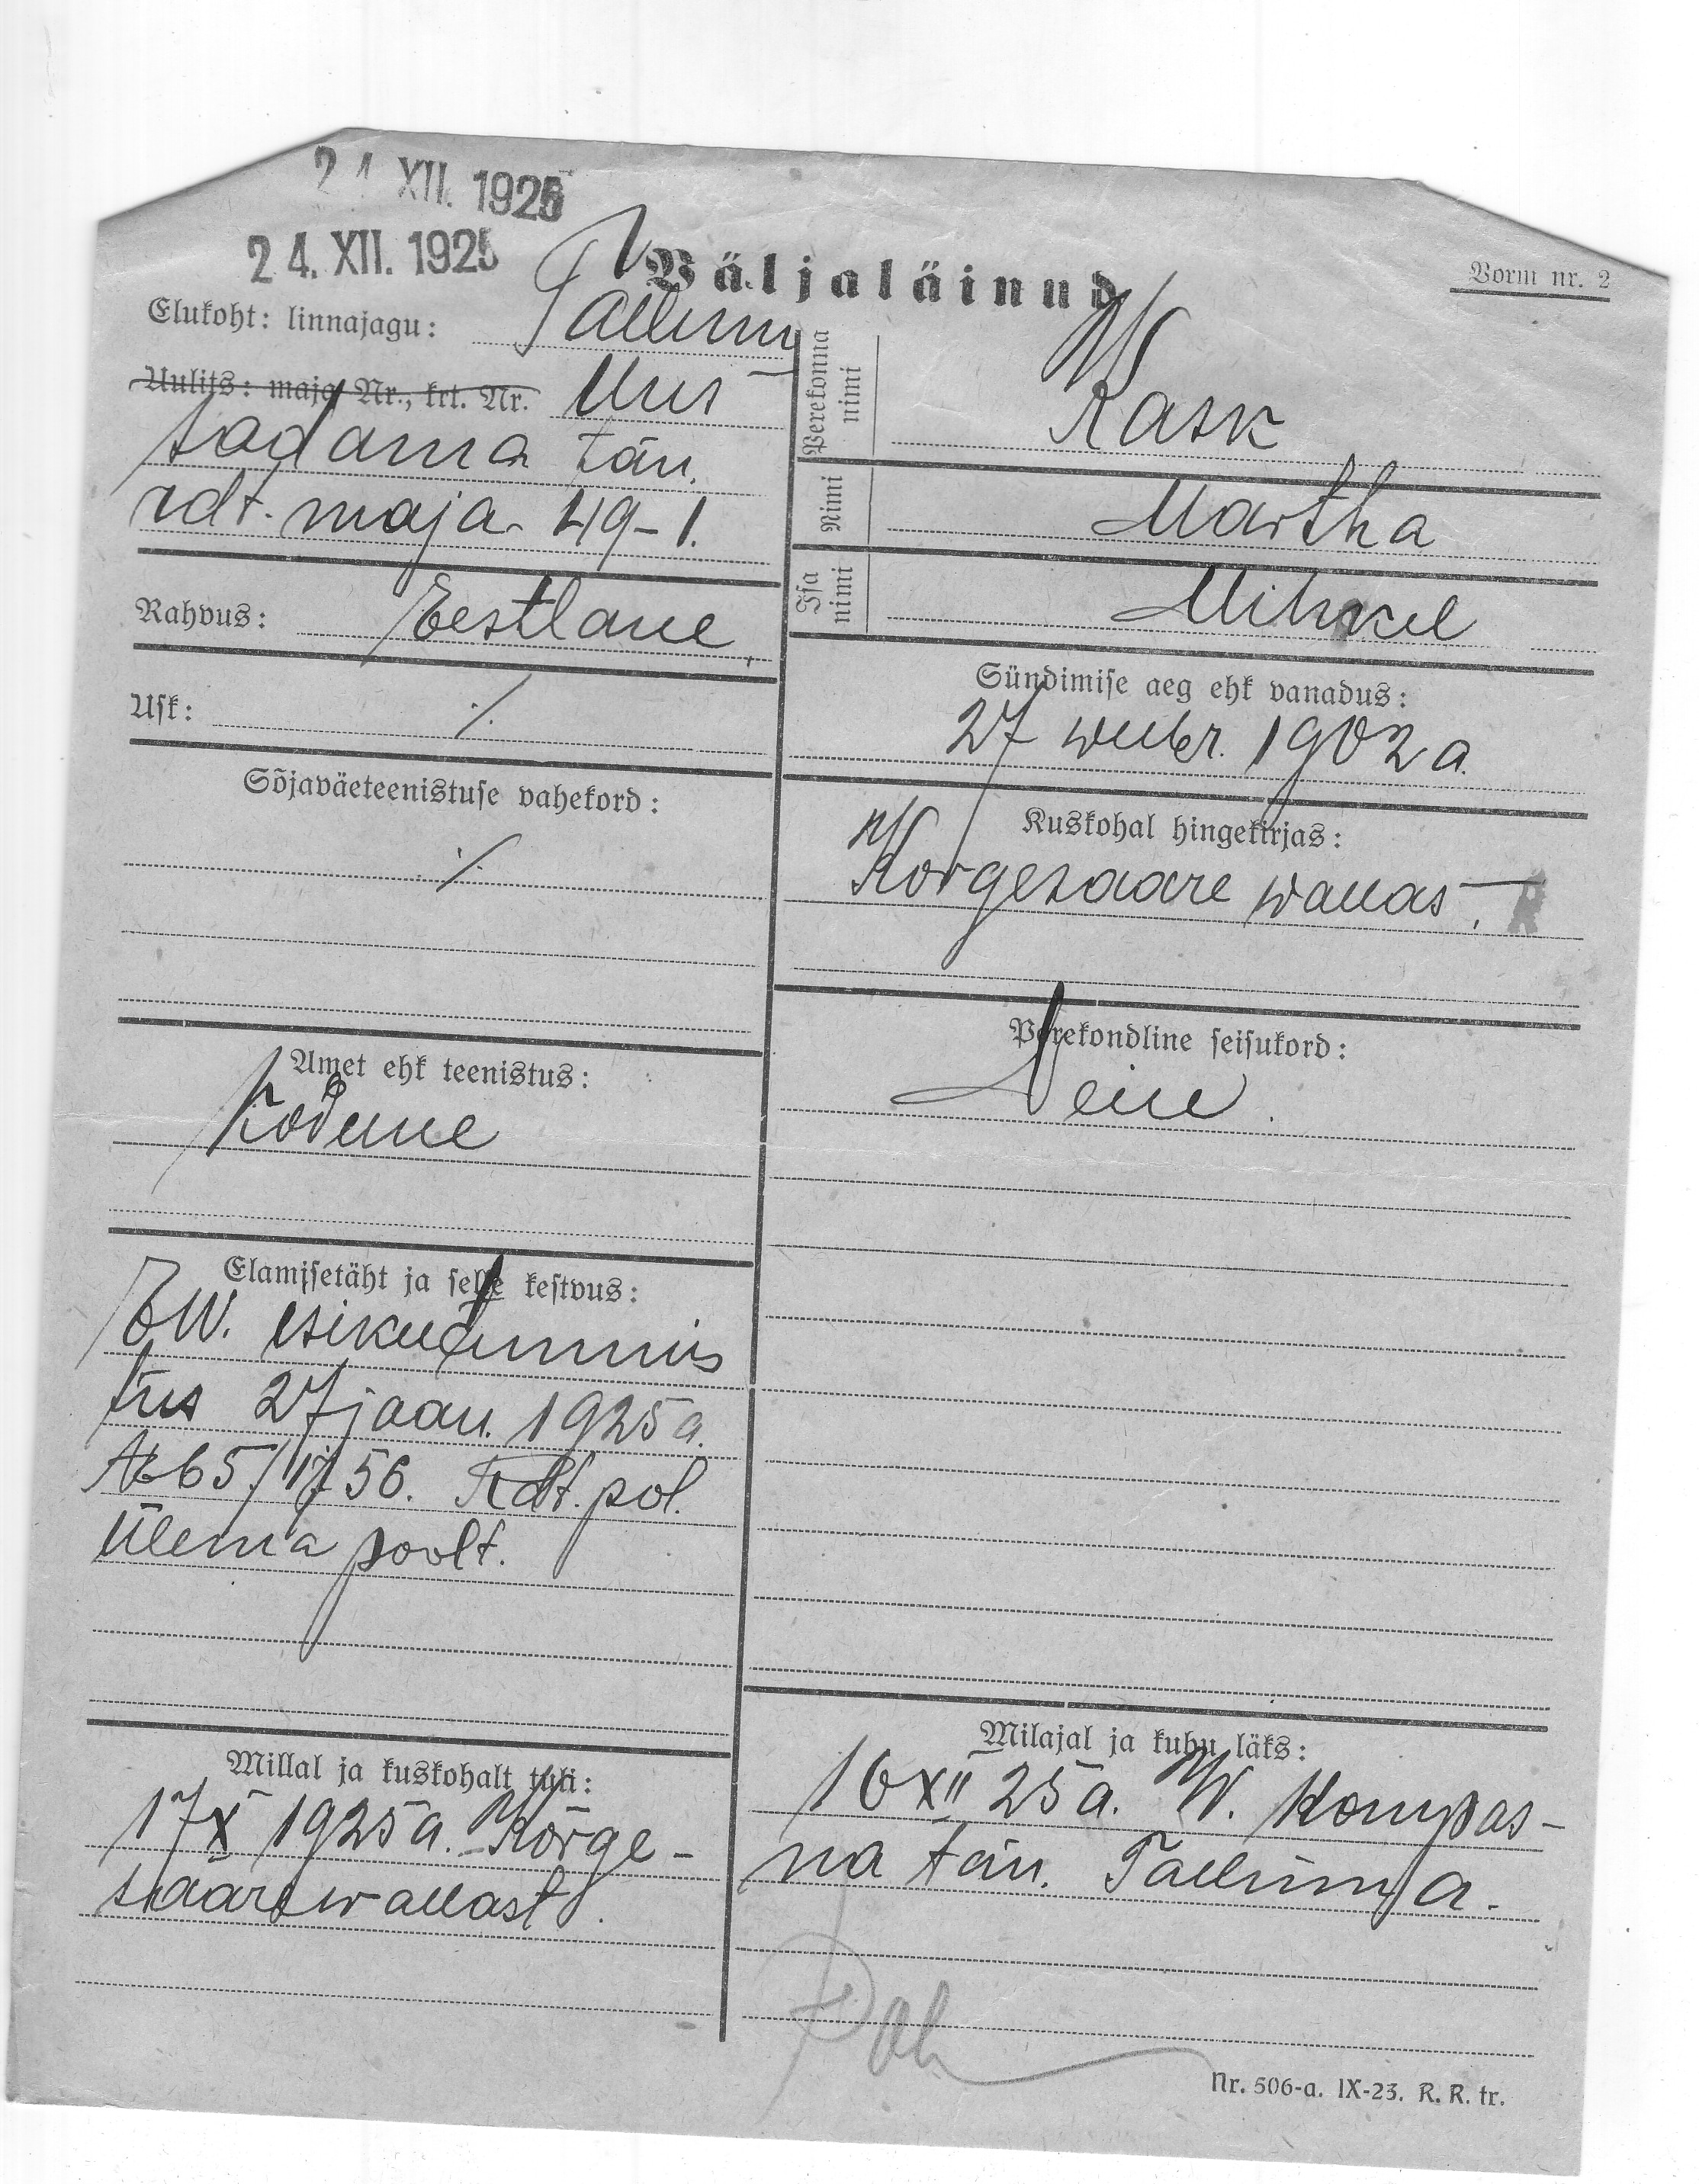 24 XII. 1925
24. XII. 1925
Väljaläinud
Vorm nr. 2
Elukoht: linnajagu: Tallinn
Uulits: maja Nr., krt. Nr. Uus
sadama tän.
rdt. maja 49-1.
Rahvus: Eestlane
Usk: ./.
Sõjaväeteenistuse vahekord:
./.
Amet ehk teenistus:
Elamisetäht ja selle kestvus:
EW. isikutunnis
tus 27 jaan. 1925 a.
№ 65/1756. Rdt. pol.
ülema poolt.
Millal ja kuskohalt tuli:
17 X 1925 a. Kõrge-
saare wallast.
Perekonna nimi Kask
Nimi Martha
Isa nimi Mihkel
Sündimise aeg ehk vanadus:
27 weebr. 1902 a.
Kuskohal hingekirjas:
Korgesaare wallas.
Perekondline seisukord:
Neiu.
Milajal ja kuhu läks:
16 XII 25 a. W. Kompas-
na tän. Tallinna.
Nr. 506-a. IX-23. R. R. tr.